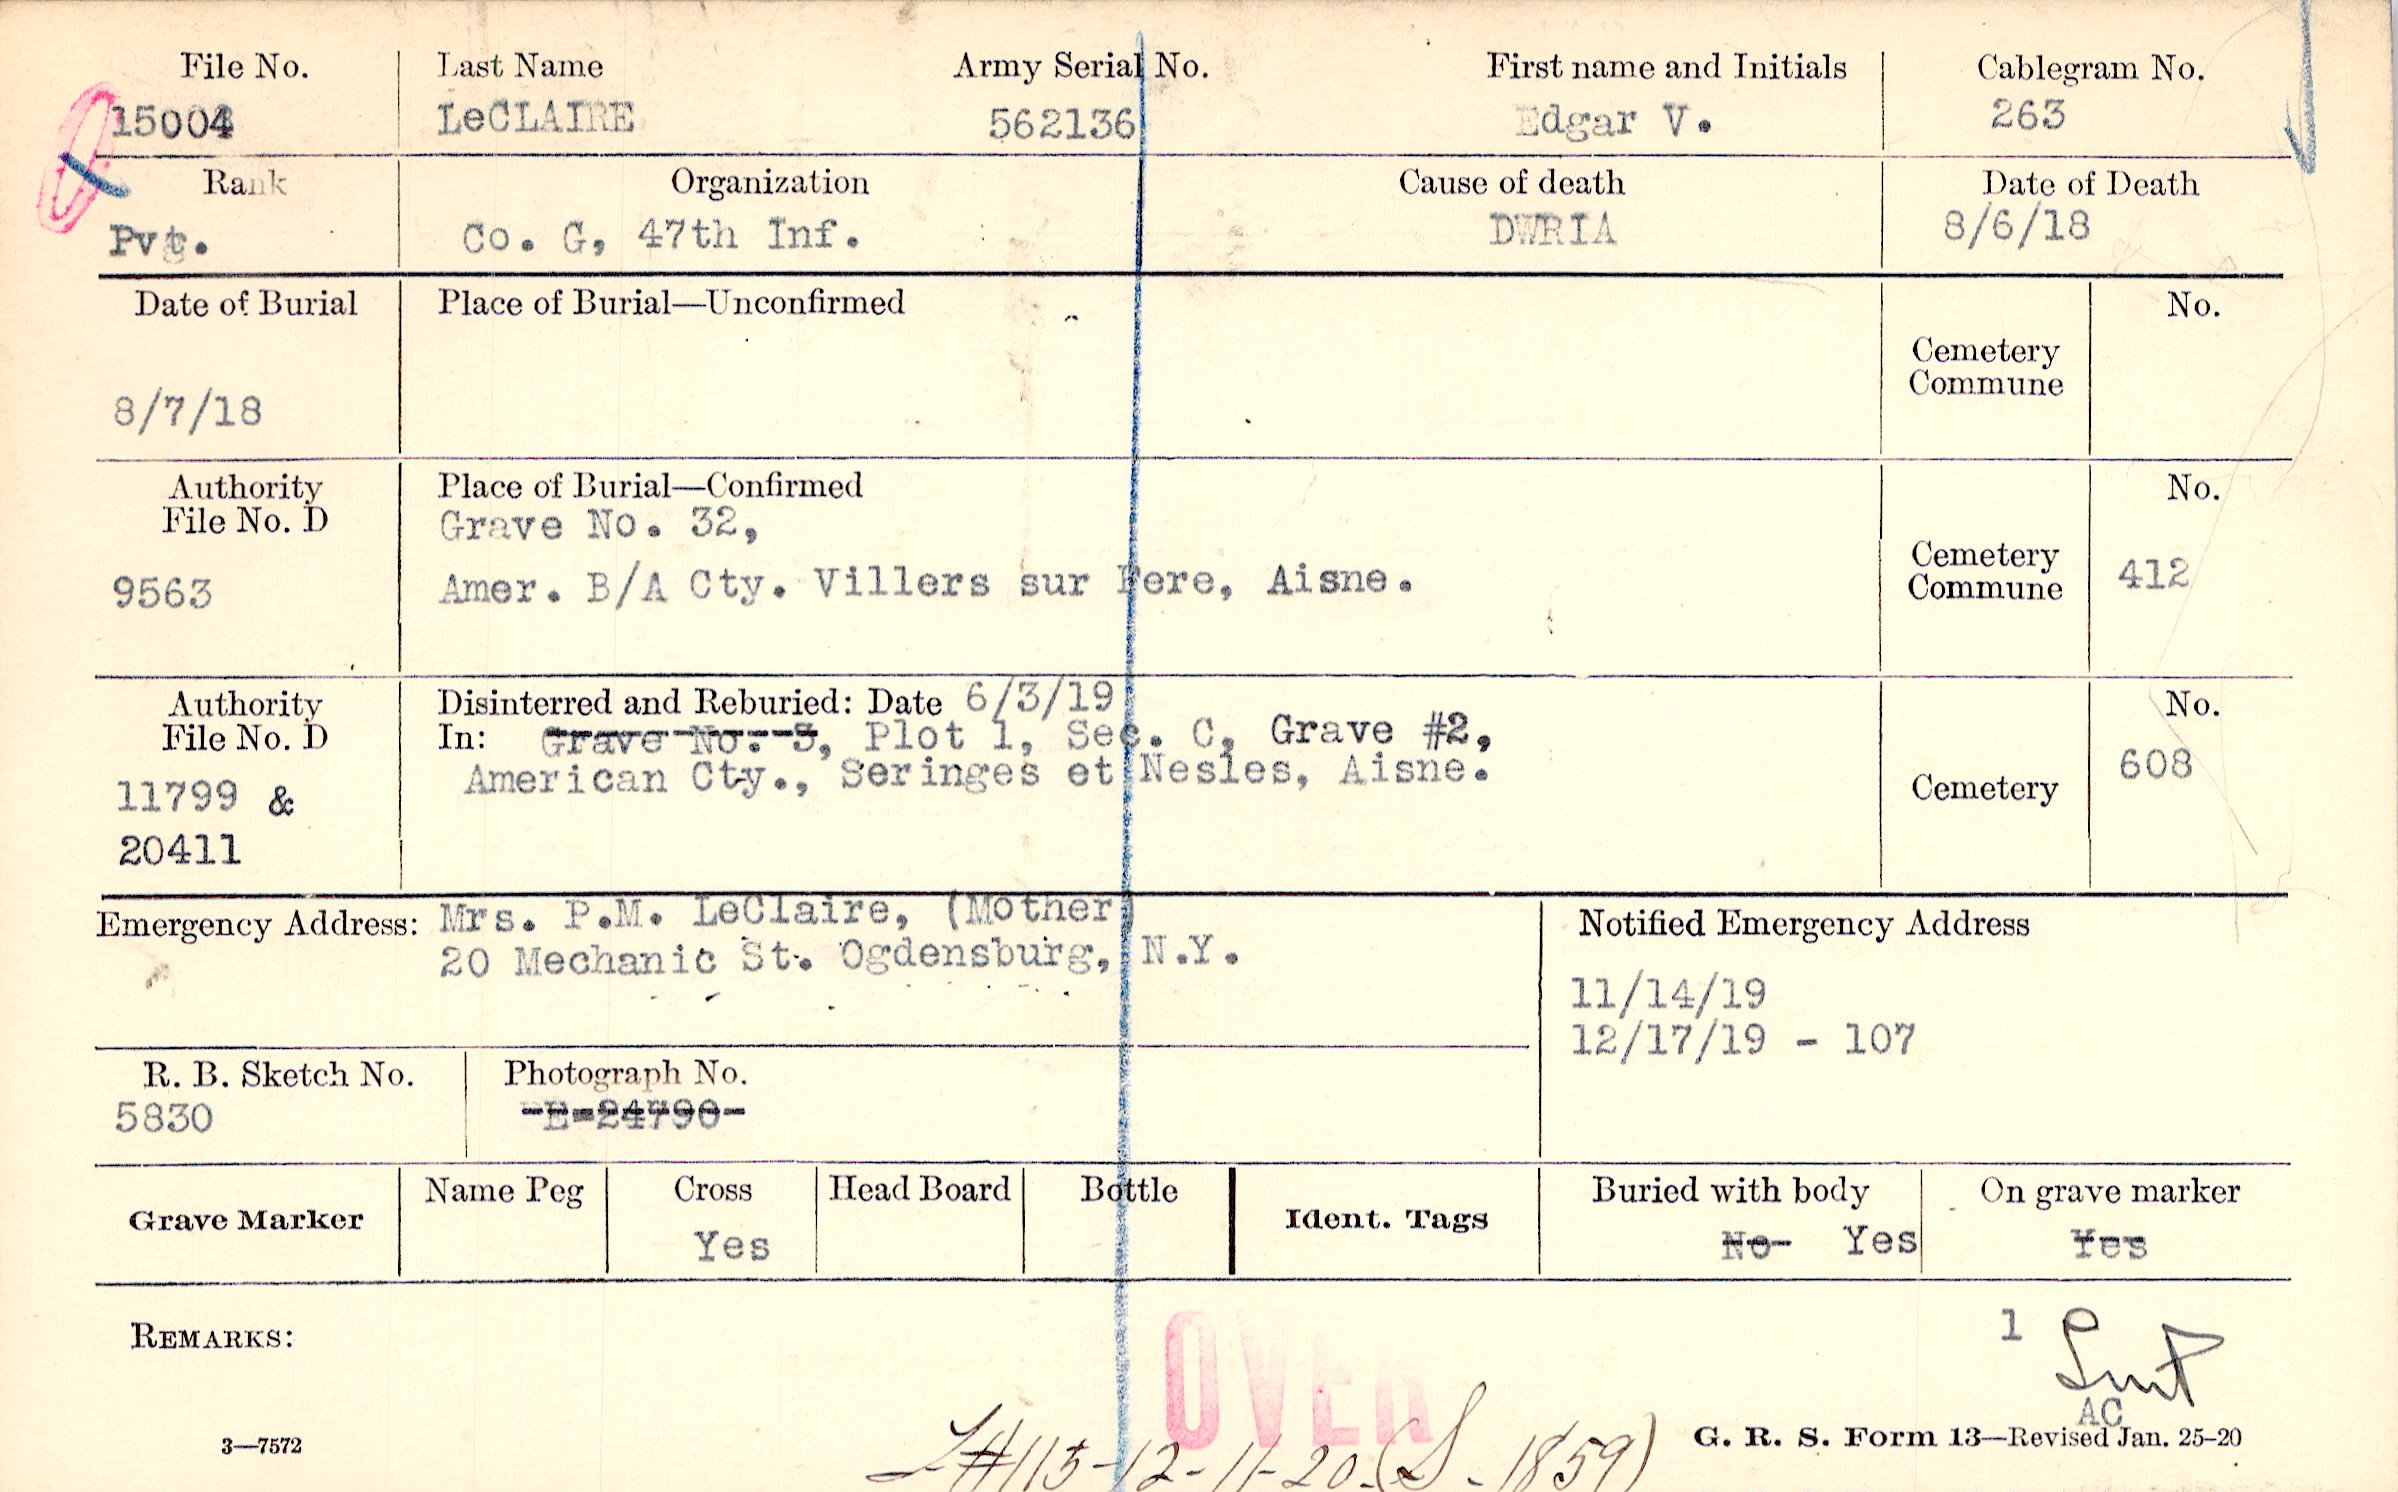 File No. Last Name Army Serial No. First name and Initials Cablegram No.
15004 LeCLAIRE 562136 Edgar V. 263
Rank Organization Cause of death Date of Death
Pvt. Co. G, 47th Inf. DWRIA 8/6/18
Date of Burial Place of Burial—Unconfirmed No.
Cemetery
Commune
8/7/18
Authority Place of Burial—Confirmed No.
File No. D Grave No. 32,
Cemetery
Commune
9563 Amer. B/A Cty. Villers sur Fere, Aisne. 412
Authority Disinterred and Reburied: Date 6/3/19 No.
File No. D In: Grave No. 3, Plot 1, Sec. C, Grave #2,
American Cty., Seringes et Nesles, Aisne. 608
11799 & Cemetery
20411
Emergency Address: Mrs. P.M. LeClaire, (Mother) Notified Emergency Address
20 Mechanic St. Ogdensburg, N.Y.
11/14/19
12/17/19 - 107
R. B. Sketch No. Photograph No.
5830 -E-24790-
Grave Marker Name Peg Cross Head Board Bottle Ident. Tags Buried with body On grave marker
Yes No- Yes Yes
REMARKS: 1
OVER
AC
3—7572 G. R. S. Form 13—Revised Jan. 25-20
#115-12-11-20. (S-1859)